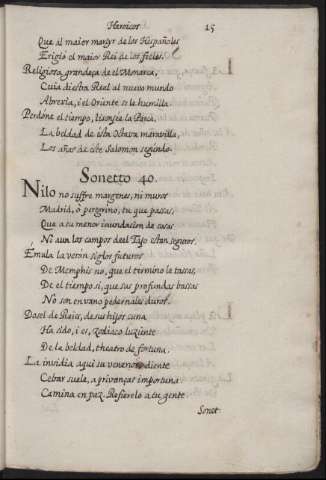 Heroicos 15
Que al maior martyr de los Hespañoles
Erigiò el maior Rei de los fieles.
Religiosa grandeça de el Monarca,
Cuia diestra Real al nueuo mundo
Abreuia, i el Oriente se le humilla.
Perdone el tiempo, lisongée la Parca,
La beldad de ésta Octaua marauilla,
Los años de éste Salomon segundo.
Sonetto 40.
Nilo no suffre margenes, ni muros
Madrid, ô peregrino, tu que passas,
Que a su menor inundacion de casas
Ni aun los campos de el Tajo están seguros.
Émula la verán siglos futuros
De Memphis no, que el termino le tassas;
De el tiempo si, que sus profundas bassas
No son en vano pedernales duros.
Dosel de Reies, de sus hijos cuna
Ha sido, i es, zodiaco luziente
De la beldad, theatro de fortuna.
La inuidia aqui su venenoso diente
Cebar suele, a priuanças importuna
Camina en paz. Refierelo a tu gente
Sonet